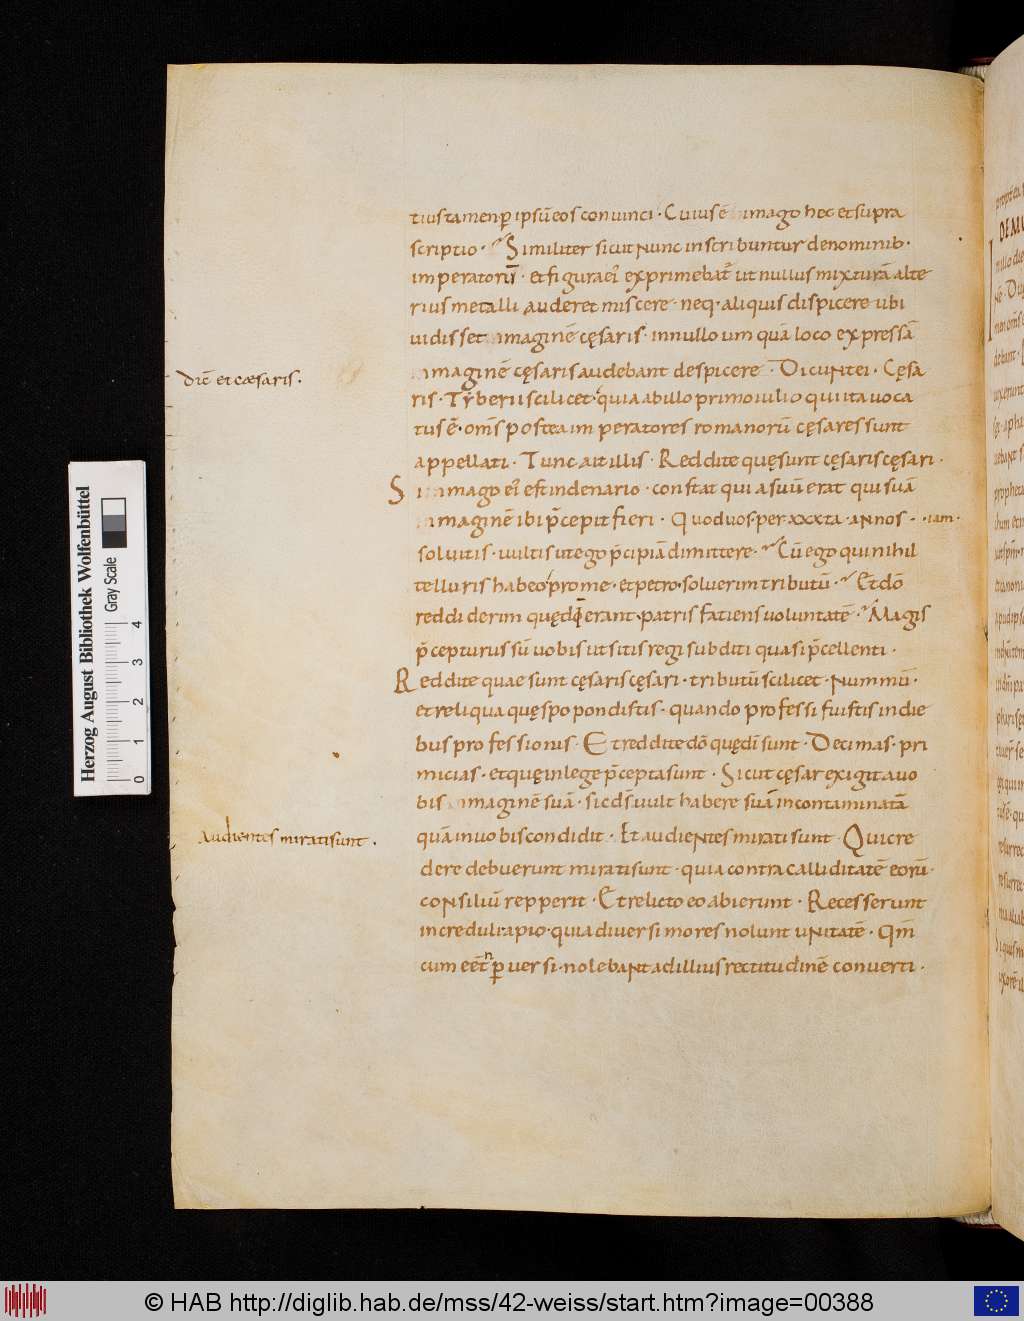 tius tamen p̱ ipsū eos convinci · Cuius ē imago hec et supra
scriptio · Similiter sicut nunc inscribuntur denominib·
imperatorū · et figura ei' exprimebat' ut nullus mixturā alte
rius metalli auderet miscere · neq· aliquis dispicere ubi
uidisset imaginē cęsaris · in nullo umquā loco expressā
imaginē cęsaris audebant despicere · Dicunt ei · Cęsa
ris · Tẏberii scilicet · quia ab illo primo iulio qui ita uoca
tus ē · om̄s postea imperatores romanorū cęsares sunt
appellati · Tunc ait illis · Reddite quę sunt cęsaris cęsari ·
Si imago ei' est in denario · constat quia suū erat qui suā
imaginē ibi p̄cepit fieri · Quod uos · per xxxta · annos · · iam ·
soluitis · uultis ut ego p̄cipiā dimittere · Cū ego qui nihil
telluris habeo · pro me · et petro · soluerim tributū · Et dō
reddiderim quę dī erant · patris fatiens uoluntatē · Magis
p̄cepturus sū uobis ut sitis regi subditi quasi p̄cellenti ·
Reddite quae sunt cęsaris cęsari · tributū scilicet · nummū ·
et reliqua quę spopondistis · quando professi fuistis in die
bus professionis · Et reddite dō quę dī sunt · Decimas · pri
micias · et quę in lege p̄cepta sunt · Sicut cęsar exigit a uo
bis imaginē suā · sic d̄s uult habere suā incontaminatā
quā in uobis condidit · Et audientes mirati sunt · Qui cre
dere debuerunt mirati sunt · quia contra calliditatē eorū ·
consiliū repperit · Et relicto eo abierunt · Recesserunt
increduli a pio · quia diuersi mores nolunt unitatē · Qm̄
cum eēt p̱uersi · nolebant ad illius rectitudinē conuerti ·
dic̄ ei cæsaris ·
Audientes mirati sunt ·
Herzog August Bibliothek Wolfenbüttel
Gray Scale
0 1 2 3 4
© HAB http://diglib.hab.de/mss/42-weiss/start.htm?image=00388